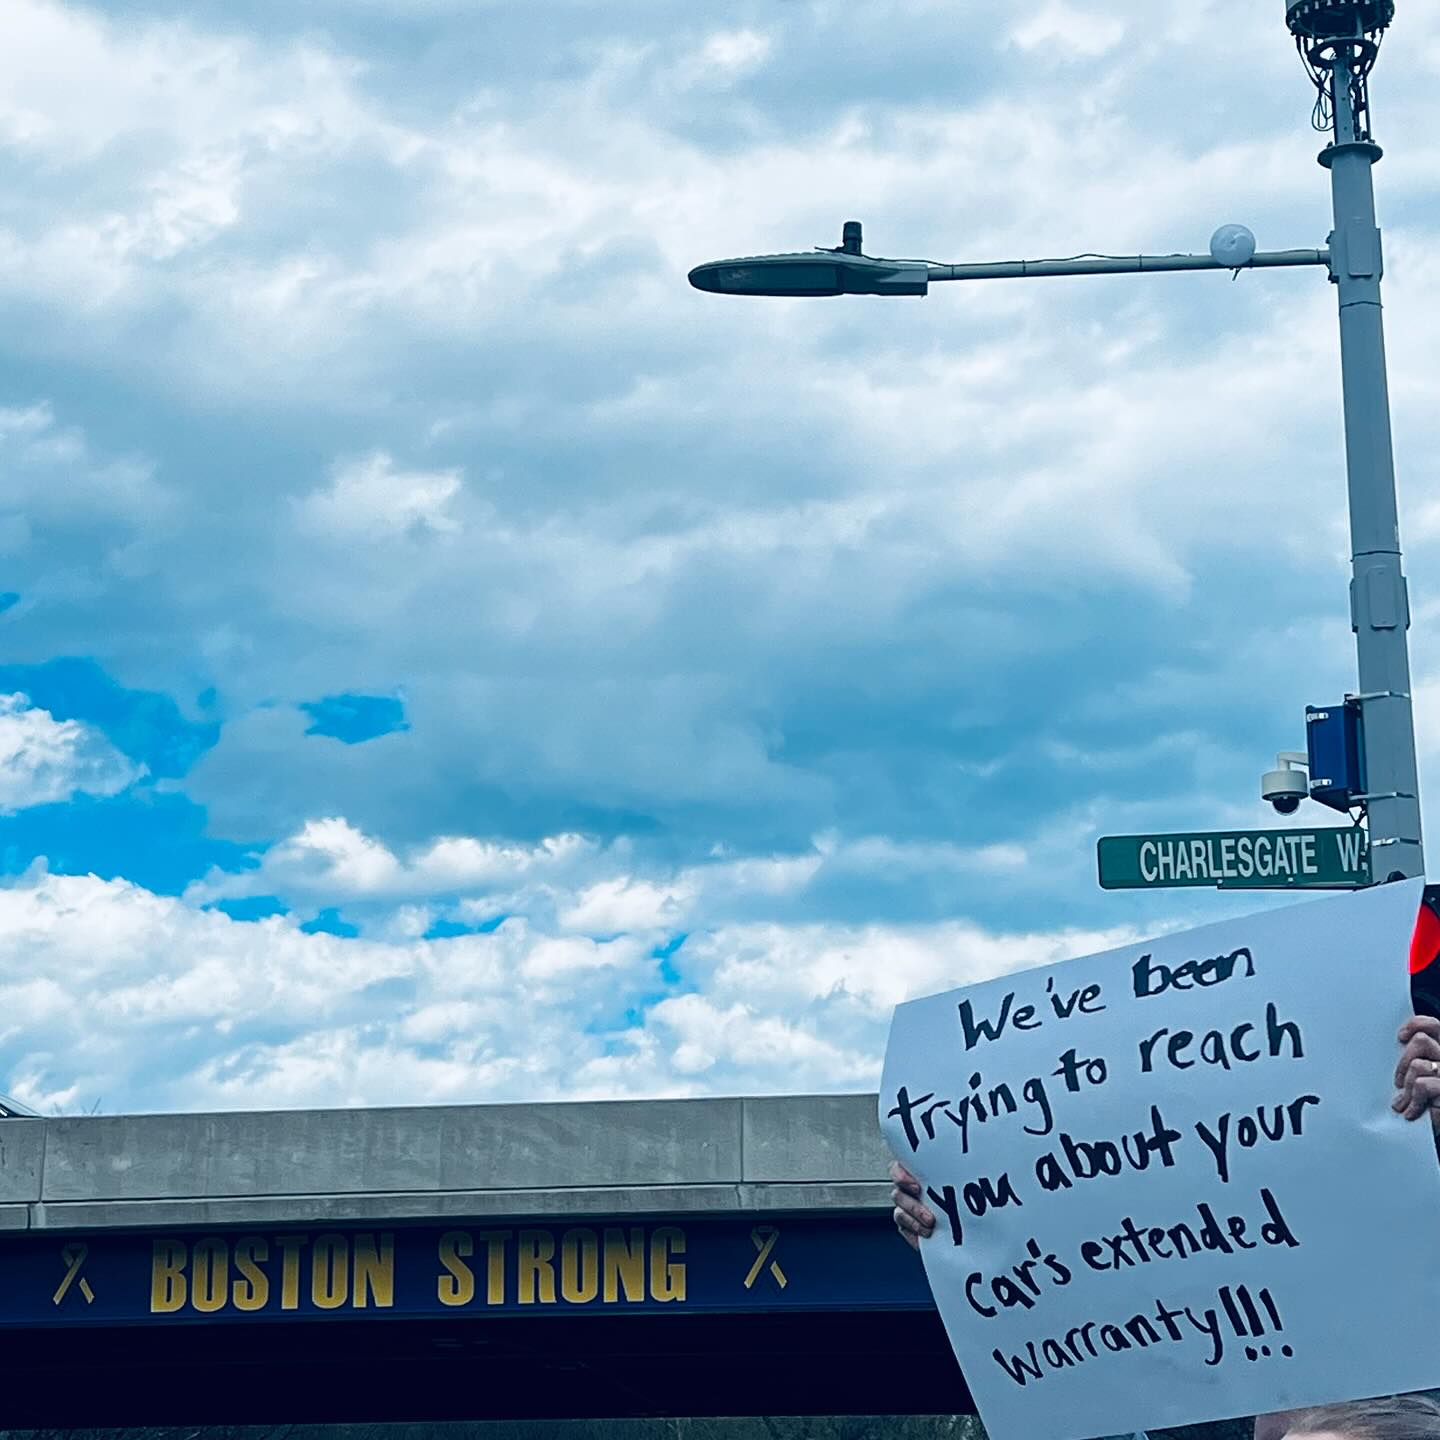 CHARLESGATE W.
We've been
trying to reach
you about your
car's extended
warranty!!!
BOSTON STRONG